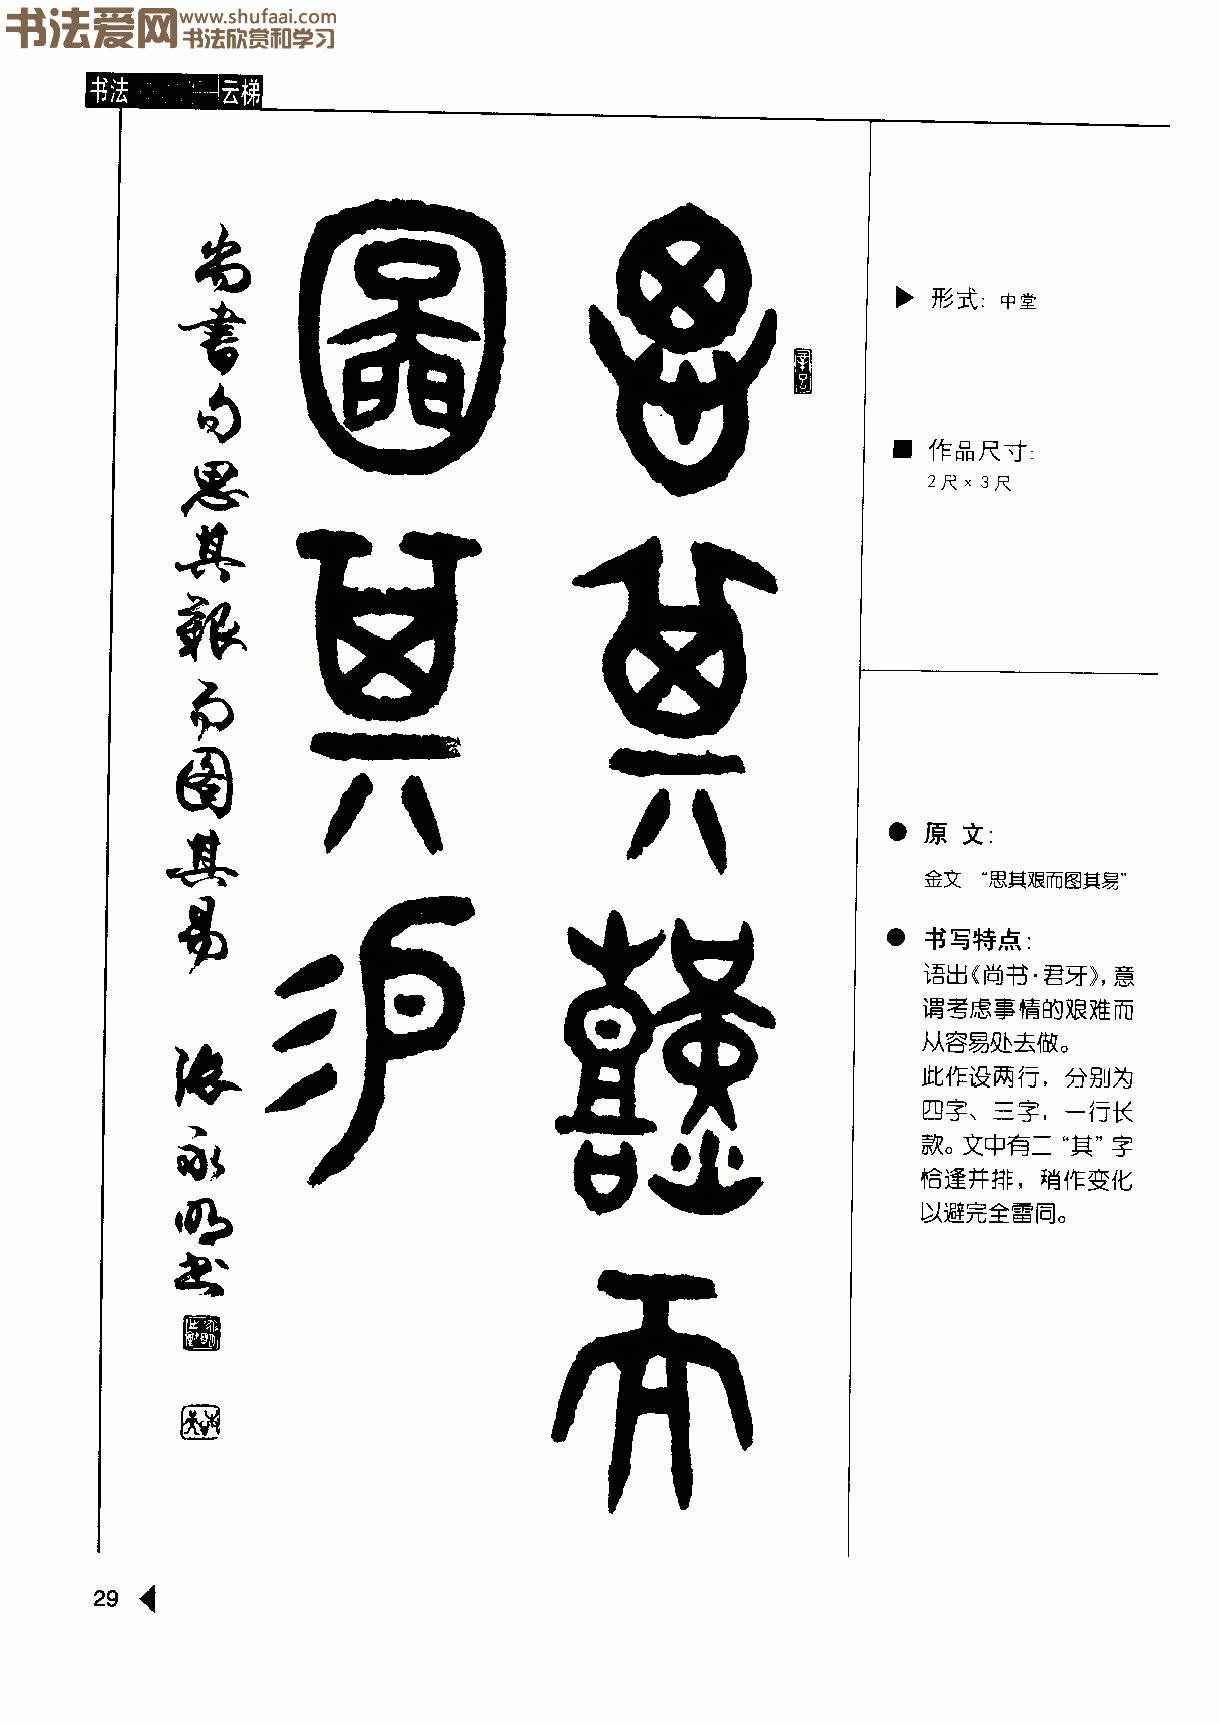 书法爱网 www.shufaai.com
书法欣赏和学习
书法
云梯
思其艱而
圖其易
尚書句思其艱而图其易 張永明书
形式：中堂
作品尺寸：
2尺×3尺
原文：
金文 “思其艰而图其易”
书写特点：
语出《尚书·君牙》，意
谓考虑事情的艰难而
从容易处去做。
此作设两行，分别为
四字、三字，一行长
款。文中有二“其”字
恰逢并排，稍作变化
以避完全雷同。
29